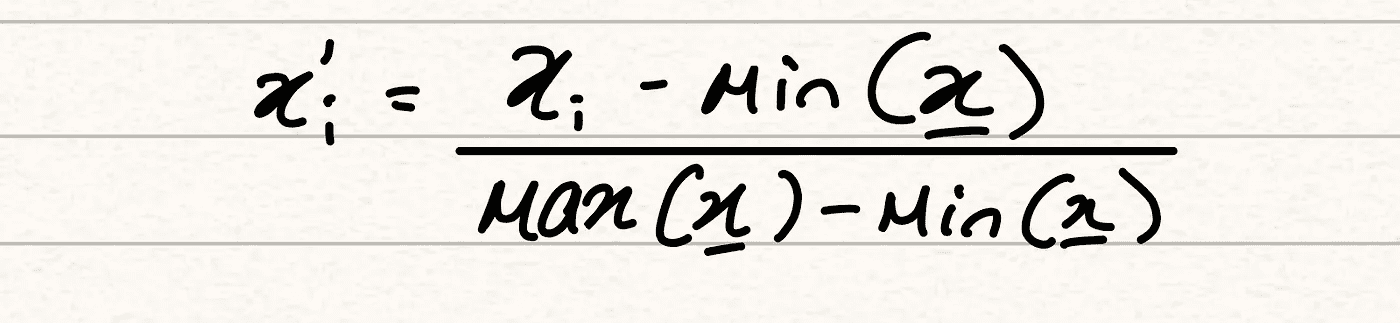 x'ᵢ = xᵢ - Min(x̲)
Max(x̲) - Min(x̲)